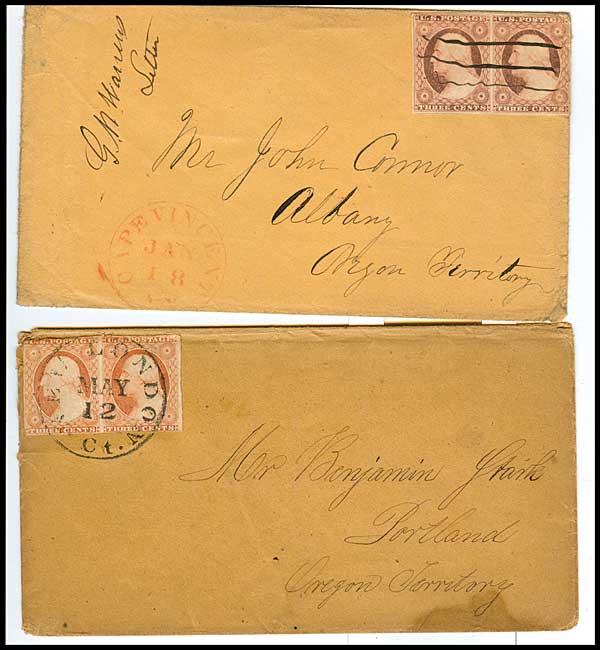 G. W. Warrens
Letter
U.S. POSTAGE U.S. POSTAGE
THREE CENTS THREE CENTS
Mr John Connor
Albany
Oregon Territory
CAPE VINCENT
JAN
18
U.S. POSTAGE U.S. POSTAGE
THREE CENTS THREE CENTS
NEW LONDON
MAY
12
Ct.
Mr Benjamin Stark
Portland
Oregon Territory